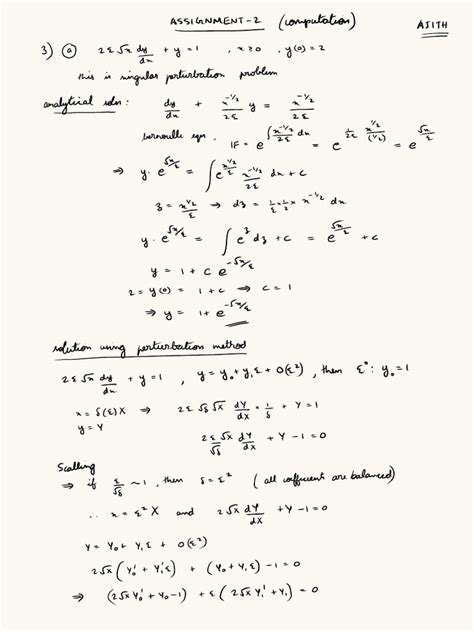 ASSIGNMENT-2 (computation) AJITH
3) (a) 2ε√x dy/dx + y = 1 , x≥0 , y(0) = 2
this is singular perturbation problem
analytical soln: dy/dx + x^{-1/2}/2ε y = x^{-1/2}/2ε
bernoulle eqn, IF = e^{∫ x^{-1/2}/2ε dx} = e^{1/2ε x^{1/2}/(1/2)} = e^{√x/ε}
⇒ y·e^{√x/ε} = ∫ e^{x^{1/2}/ε} x^{-1/2}/2ε dx + c
z = x^{1/2}/ε ⇒ dz = 1/ε × 1/2 × x^{-1/2} dx
y·e^{√x/ε} = ∫ e^z dz + c = e^{√x/ε} + c
y = 1 + c e^{-√x/ε}
2 = y(0) = 1 + c ⇒ c = 1
⇒ y = 1 + e^{-√x/ε}
solution using perturbation method
2ε√x dy/dx + y = 1 , y = y₀ + y₁ε + O(ε²) , then ε⁰: y₀ = 1
x = δ(ε)X ⇒ 2ε√δ√X dY/dX × 1/δ + Y = 1
y = Y
2ε/√δ √X dY/dX + Y - 1 = 0
Scalling
⇒ if ε/√δ ~ 1 , then δ = ε² (all coefficient are balanced)
∴ x = ε²X and 2√X dY/dX + Y - 1 = 0
Y = Y₀ + Y₁ε + O(ε²)
2√X (Y₀' + Y₁'ε) + (Y₀ + Y₁ε) - 1 = 0
⇒ (2√X Y₀' + Y₀ - 1) + ε(2√X Y₁' + Y₁) = 0